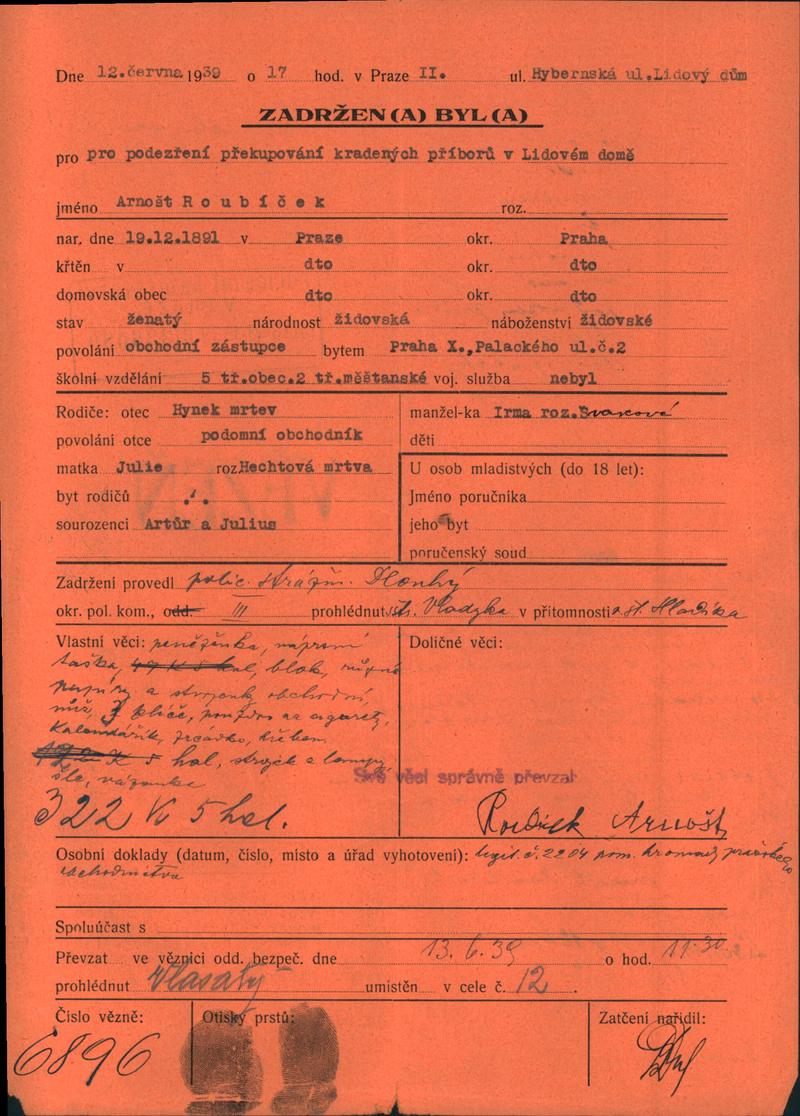 Dne 12.června 1939 o 17 hod. v Praze II. ul. Hybernská ul.Lidový dům
ZADRŽEN(A) BYL(A)
pro pro podezření překupování kradených příborů v Lidovém domě
jméno Arnošt Roubíček roz.
nar. dne 19.12.1891 v Praze okr. Praha
křtěn v dto okr. dto
domovská obec dto okr. dto
stav ženatý národnost židovská náboženství židovské
povolání obchodní zástupce bytem Praha X.,Palackého ul.č.2
školní vzdělání 5 tř.obec.2 tř.měštanské voj. služba nebyl
Rodiče: otec Hynek mrtev
povolání otce podomní obchodník
matka Julie roz.Hechtová mrtva
byt rodičů
sourozenci Artůr a Julius
manžel-ka Irma roz.
děti
U osob mladistvých (do 18 let):
Jméno poručníka
jeho byt
poručenský soud
Zadržení provedl polic. strážm. Dlouhý
okr. pol. kom., odd. III prohlédnut Vladyka v přítomnosti
Vlastní věci: peněženka, náprsní
taška, blok, různé
papíry a obchodní,
nůž, 3 klíče, pouzdro na cigarety,
kalendářík, zrcádko, hřeben
5 hal, strojek a lampy,
šle, vázanka
322 K 5 hal.
Doličné věci:
Své věci správně převzal
Roubíček Arnošt
Osobní doklady (datum, číslo, místo a úřad vyhotovení): legit. č. 2204 hromady pražského
obchodnictva
Spoluúčast s
Převzat ve věznici odd. bezpeč. dne 13.6.39 o hod. 11.30
prohlédnut Vlasatý umístěn v cele č. 12.
Číslo vězně:
6896
Otisky prstů:
Zatčení nařídil: